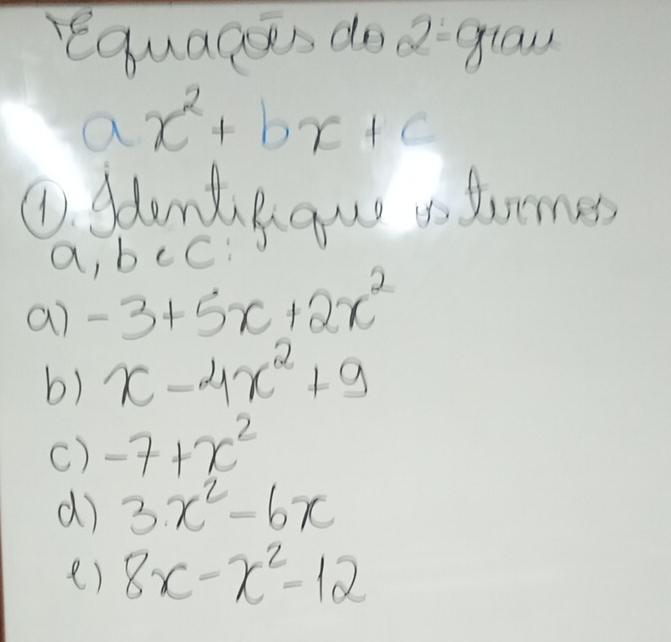 Equações do 2º grau
ax² + bx + c
①. Identifique os termos
a, b e c:
a) -3+5x+2x²
b) x-4x²+9
c) -7+x²
d) 3.x²-6x
e) 8x-x²-12